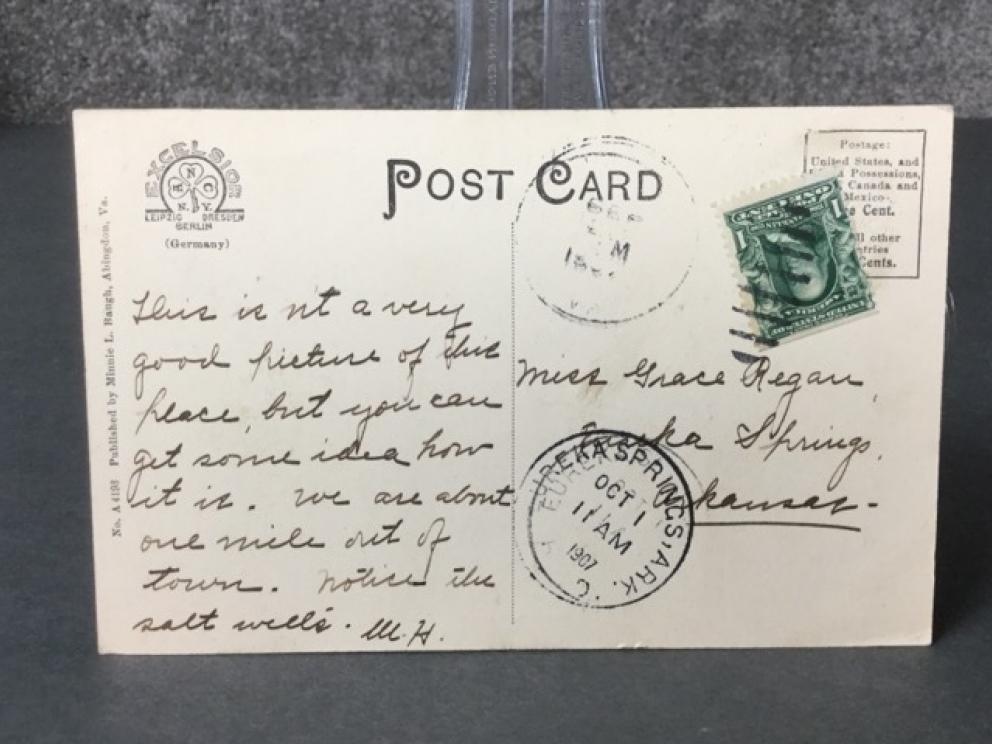 EXCELSIOR
A N C
N. Y.
LEIPZIG DRESDEN
BERLIN
(Germany)
POST CARD
SEP
M
Postage:
United States, and
Possessions,
Canada and
Mexico
Cent.
all other
Cents.
1 1
UNITED STATES OF
AMERICA
No. A 4193 Published by Minnie L. Baugh, Abingdon, Va.
This is nt a very
good picture of this
place, but you can
get some idea how
it is. We are about
one mile out of
town. Notice the
salt wells. M.H.
Miss Grace Regan,
Eureka Springs,
Arkansas-
EUREKA SPRINGS, ARK.
OCT 1
11 AM
1907
C.